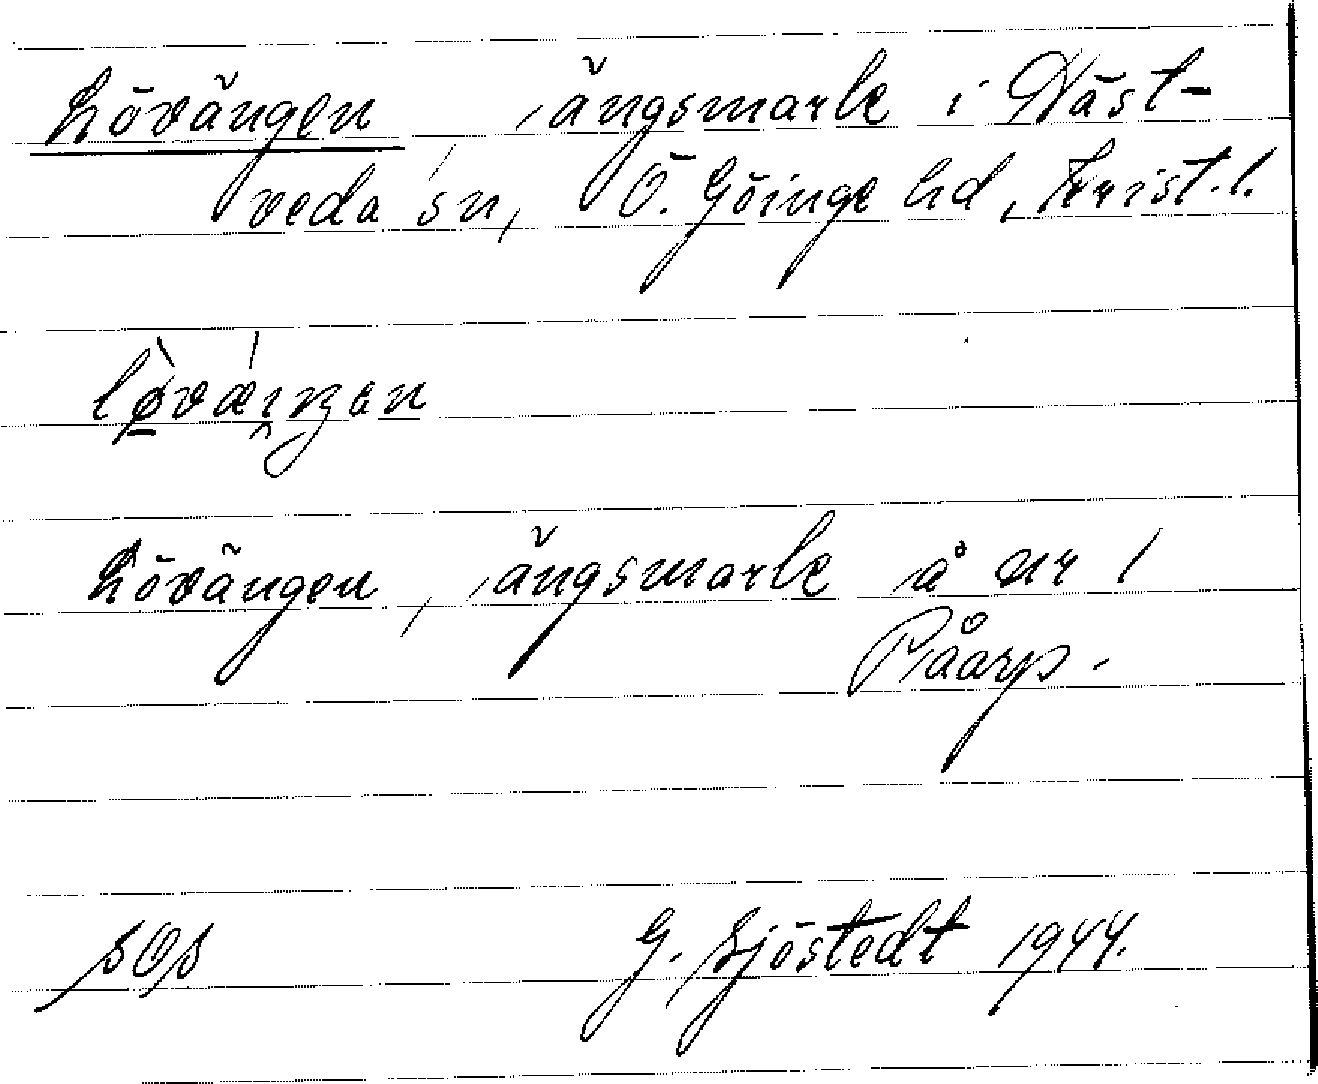 Lövängen, ängsmark i Näst-
veda sn, Ö. Göinge hd, Krist. l.
Lövängen, ängsmark å nr 1
Påarp.
SOS G. Sjöstedt 1944.